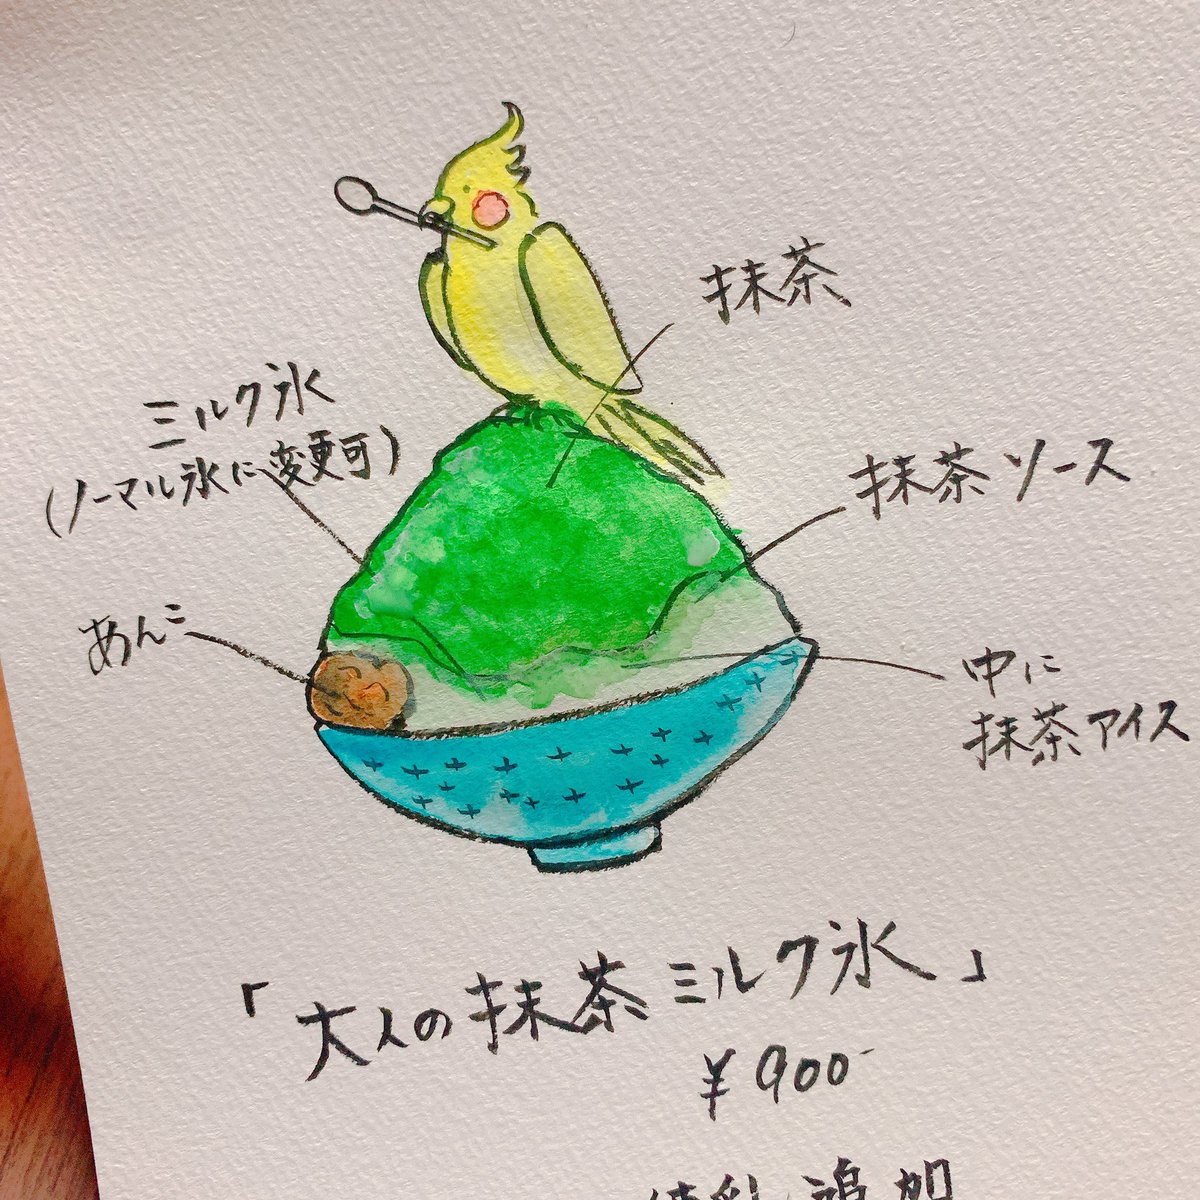 抹茶
ミルク氷
(ノーマル氷に変更可)
抹茶ソース
あんこ
中に
抹茶アイス
「大人の抹茶ミルク氷」
¥900-
練乳追加